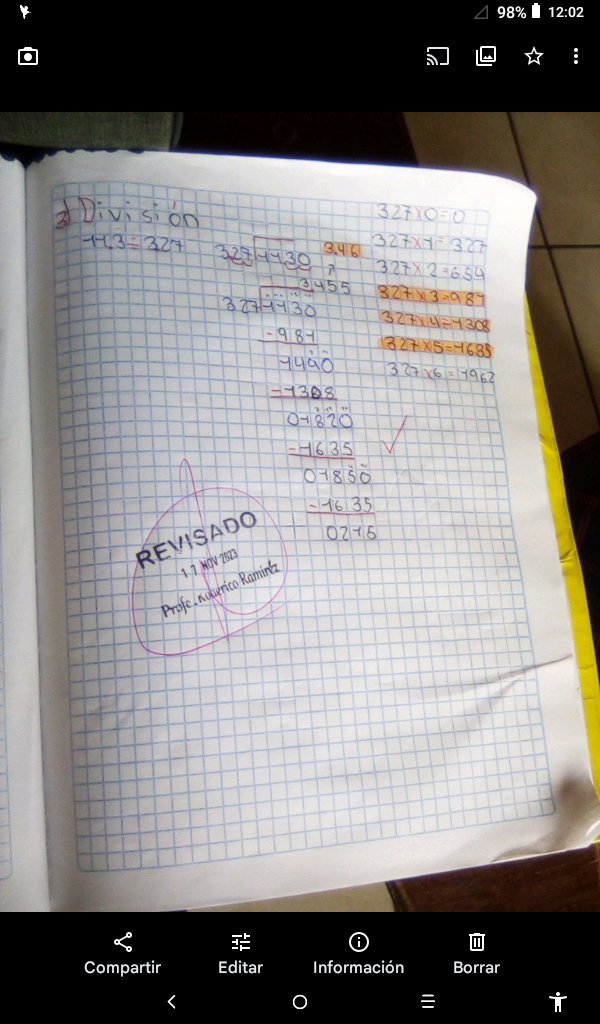 98% 12:02
3) División
11.3÷3.27
327 1130 3.46
3.455
327 1130
-981
1490
-1308
01820
-1635
01850
-1635
0215
327x0=0
327x1=327
327x2=654
327x3=981
327x4=1308
327x5=1635
327x6=1962
REVISADO
NOV 2023
Profe.
Compartir Editar Información Borrar